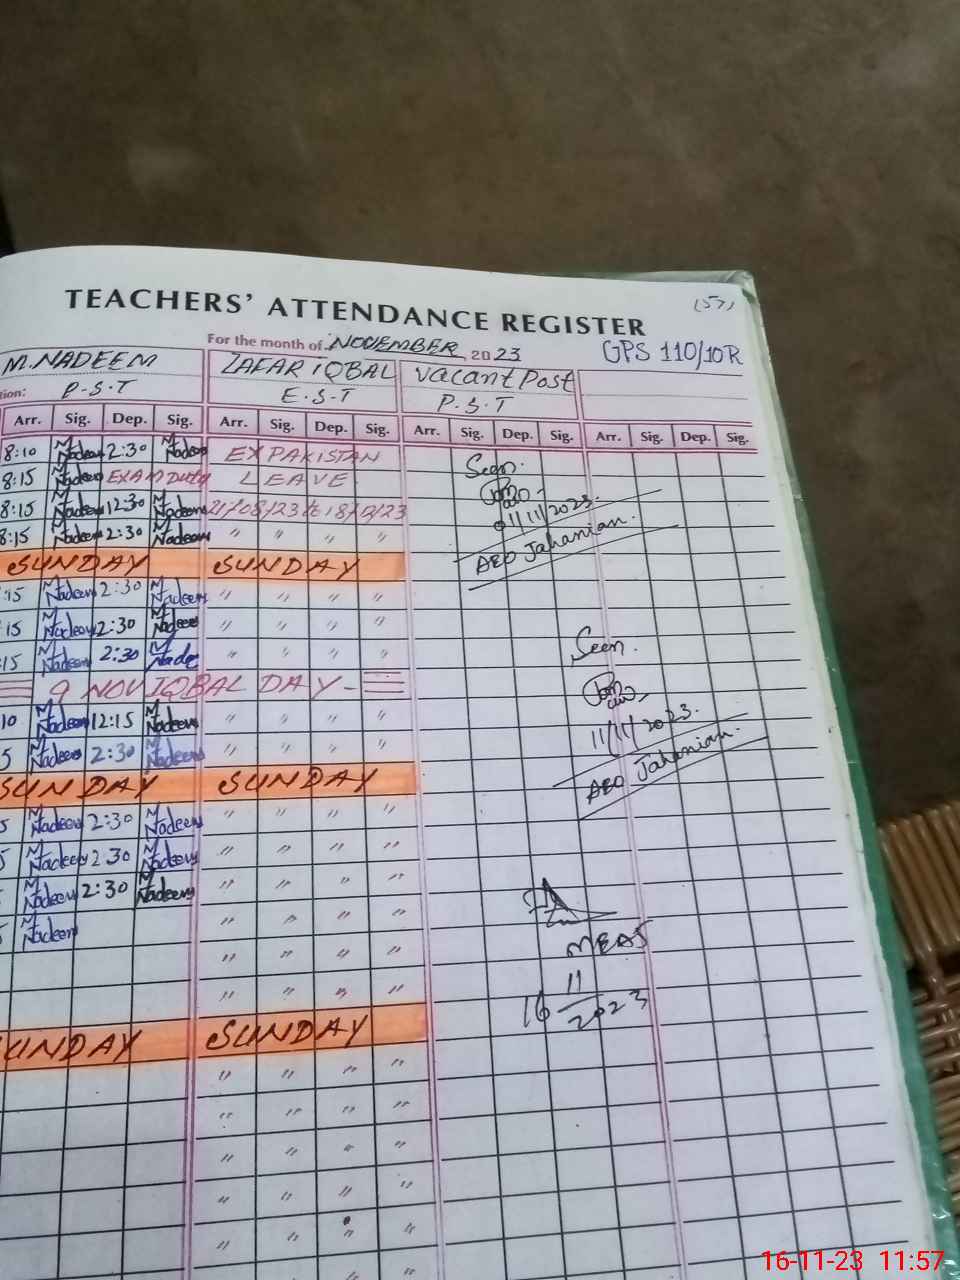 (57)
TEACHERS' ATTENDANCE REGISTER
For the month of NOVEMBER, 2023 GPS 110/10R
M. NADEEM ZAFAR IQBAL Vacant Post
tion: P.S.T E.S.T P.S.T
Arr. Sig. Dep. Sig. Arr. Sig. Dep. Sig. Arr. Sig. Dep. Sig. Arr. Sig. Dep. Sig.
8:10 M Nadeem 2:30 M Nadeem EX PAKISTAN
8:15 Nadeem EXAM Duty LEAVE Seen.
8:15 M Nadeem 12:30 M Nadeem 21/08/23 to 18/ /23 01/11/2023.
8:15 M Nadeem 2:30 M Nadeem " " " " AEO Jahanian.
SUNDAY SUNDAY
:15 M Nadeem 2:30 M Nadeem " " " "
15 M Nadeem 2:30 M Nadeem " " " "
:15 M Nadeem 2:30 M Nade " " " " Seen.
9 NOV IQBAL DAY -
10 M Nadeem 12:15 M Nadeem " " " " 11/11/2023.
5 M Nadeem 2:30 M Nadeem " " " " AEO Jahanian.
SUNDAY SUNDAY
5 M Nadeem 2:30 M Nadeem " " " "
5 M Nadeem 2:30 M Nadeem " " " "
M Nadeem 2:30 M Nadeem " " " "
5 M Nadeem " " " "
" " " " MEA
" " " " 16 11/2023
SUNDAY SUNDAY
" " " "
" " " "
" " " "
" " " "
" " "
16-11-23 11:57